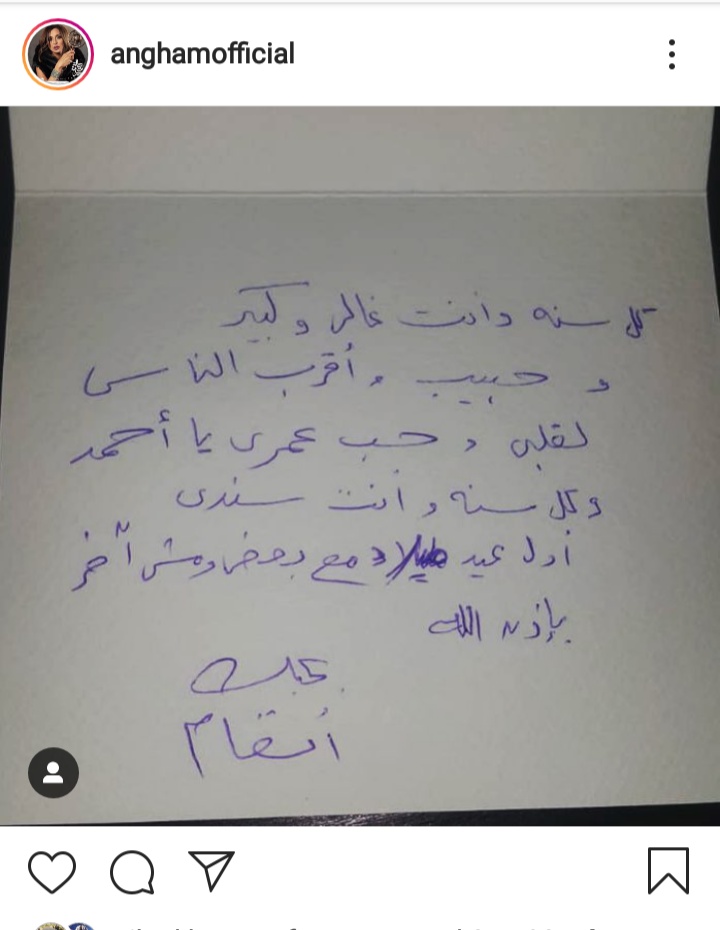 anghamofficial
كل سنه وانت غالى وكبير
و حبيب و أقرب الناس
لقلبى و حب عمرى يا أحمد
وكل سنه و أنت سندى
أول عيد ميلاد مع بعض ومش آخر
بإذن الله
بحبك
أنغام